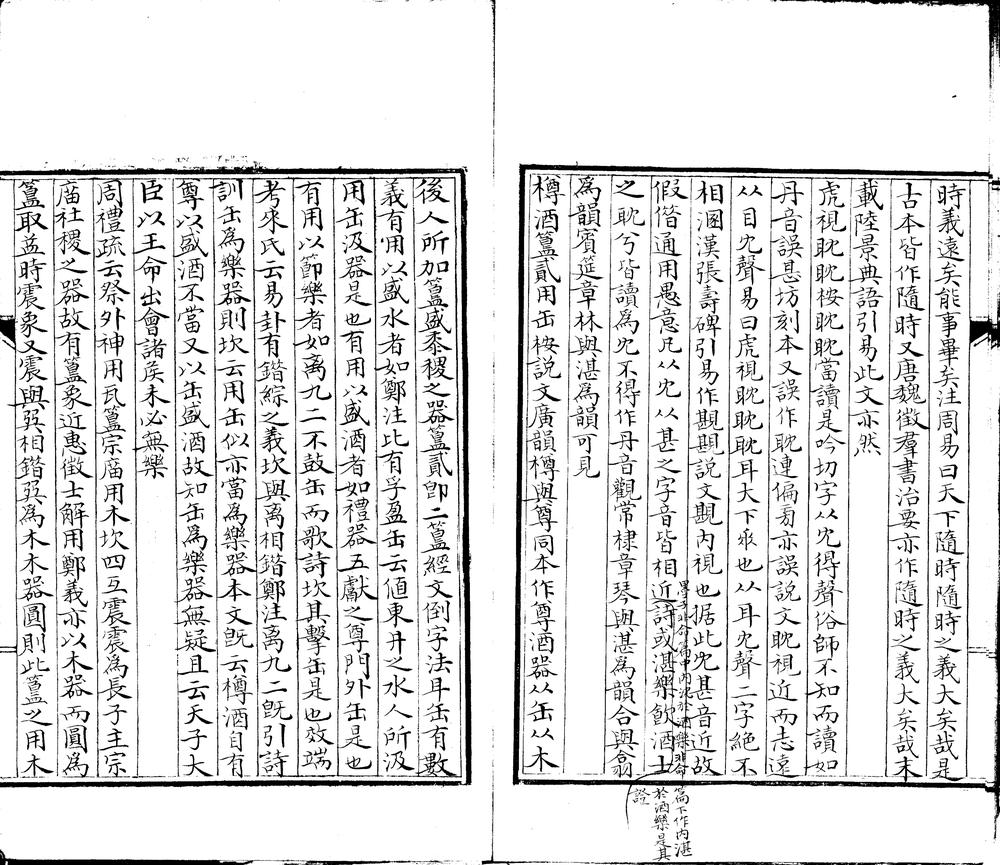 時義遠矣能事畢矣注周易曰天下隨時隨時之義大矣哉是
古本皆作隨時又唐魏徵羣書治要亦作隨時之義大矣哉末
載陸景典語引易此文亦然
虎視眈眈桉眈眈當讀是吟切字从冘得聲俗師不知而讀如
丹音誤甚坊刻本又誤作耽連偏旁亦誤說文眈視近而志遠
从目冘聲易曰虎視眈眈耽耳大下垂也从耳冘聲二字絕不
相溷漢張壽碑引易作覝覝說文覝內視也据此冘甚音近故
假借通用愚意凡从冘从甚之字音皆相近詩或湛樂飲酒士
之耽兮皆讀爲冘不得作丹音觀常棣章琴與湛爲韻合與翕
爲韻賓筵章林與湛爲韻可見
樽酒簋貳用缶桉說文廣韻樽與尊同本作尊酒器从缶从木
墨子非命篇中內沈於酒樂非命
篇下作內湛
於酒樂是其
證
後人所加簋盛黍稷之器簋貳卽二簋經文倒字法耳缶有數
義有用以盛水者如鄭注比有孚盈缶云値東井之水人所汲
用缶汲器是也有用以盛酒者如禮器五獻之尊門外缶是也
有用以節樂者如离九二不鼓缶而歌詩坎其擊缶是也效端
考來氏云易卦有錯綜之義坎與离相錯鄭注离九二旣引詩
訓缶爲樂器則坎云用缶似亦當爲樂器本文旣云樽酒自有
尊以盛酒不當又以缶盛酒故知缶爲樂器無疑且云天子大
臣以王命出會諸矦未必無樂
周禮疏云祭外神用瓦簋宗廟用木坎四互震震爲長子主宗
廟社稷之器故有簋象近惠徵士解用鄭義亦以木器而圓爲
簋取益時震象又震與巽相錯巽爲木木器圓則此簋之用木